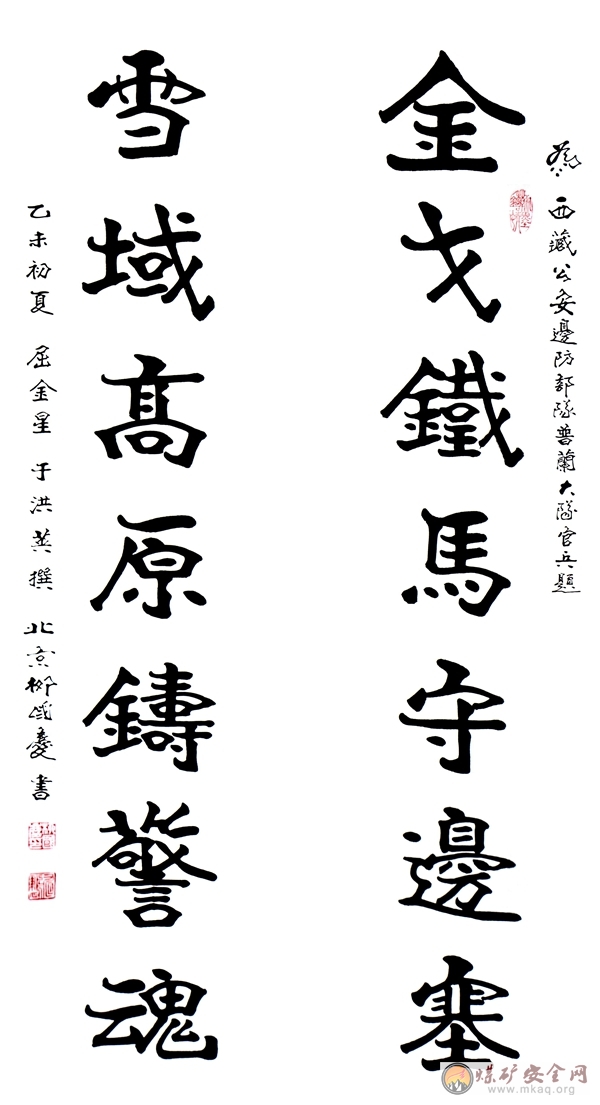 為西藏公安邊防部隊普蘭大隊官兵題
金戈鐵馬守邊塞
雪域高原鑄警魂
乙未初夏 屈金星 于洪英撰 北京柳國慶書
煤矿安全网
www.mkaq.org